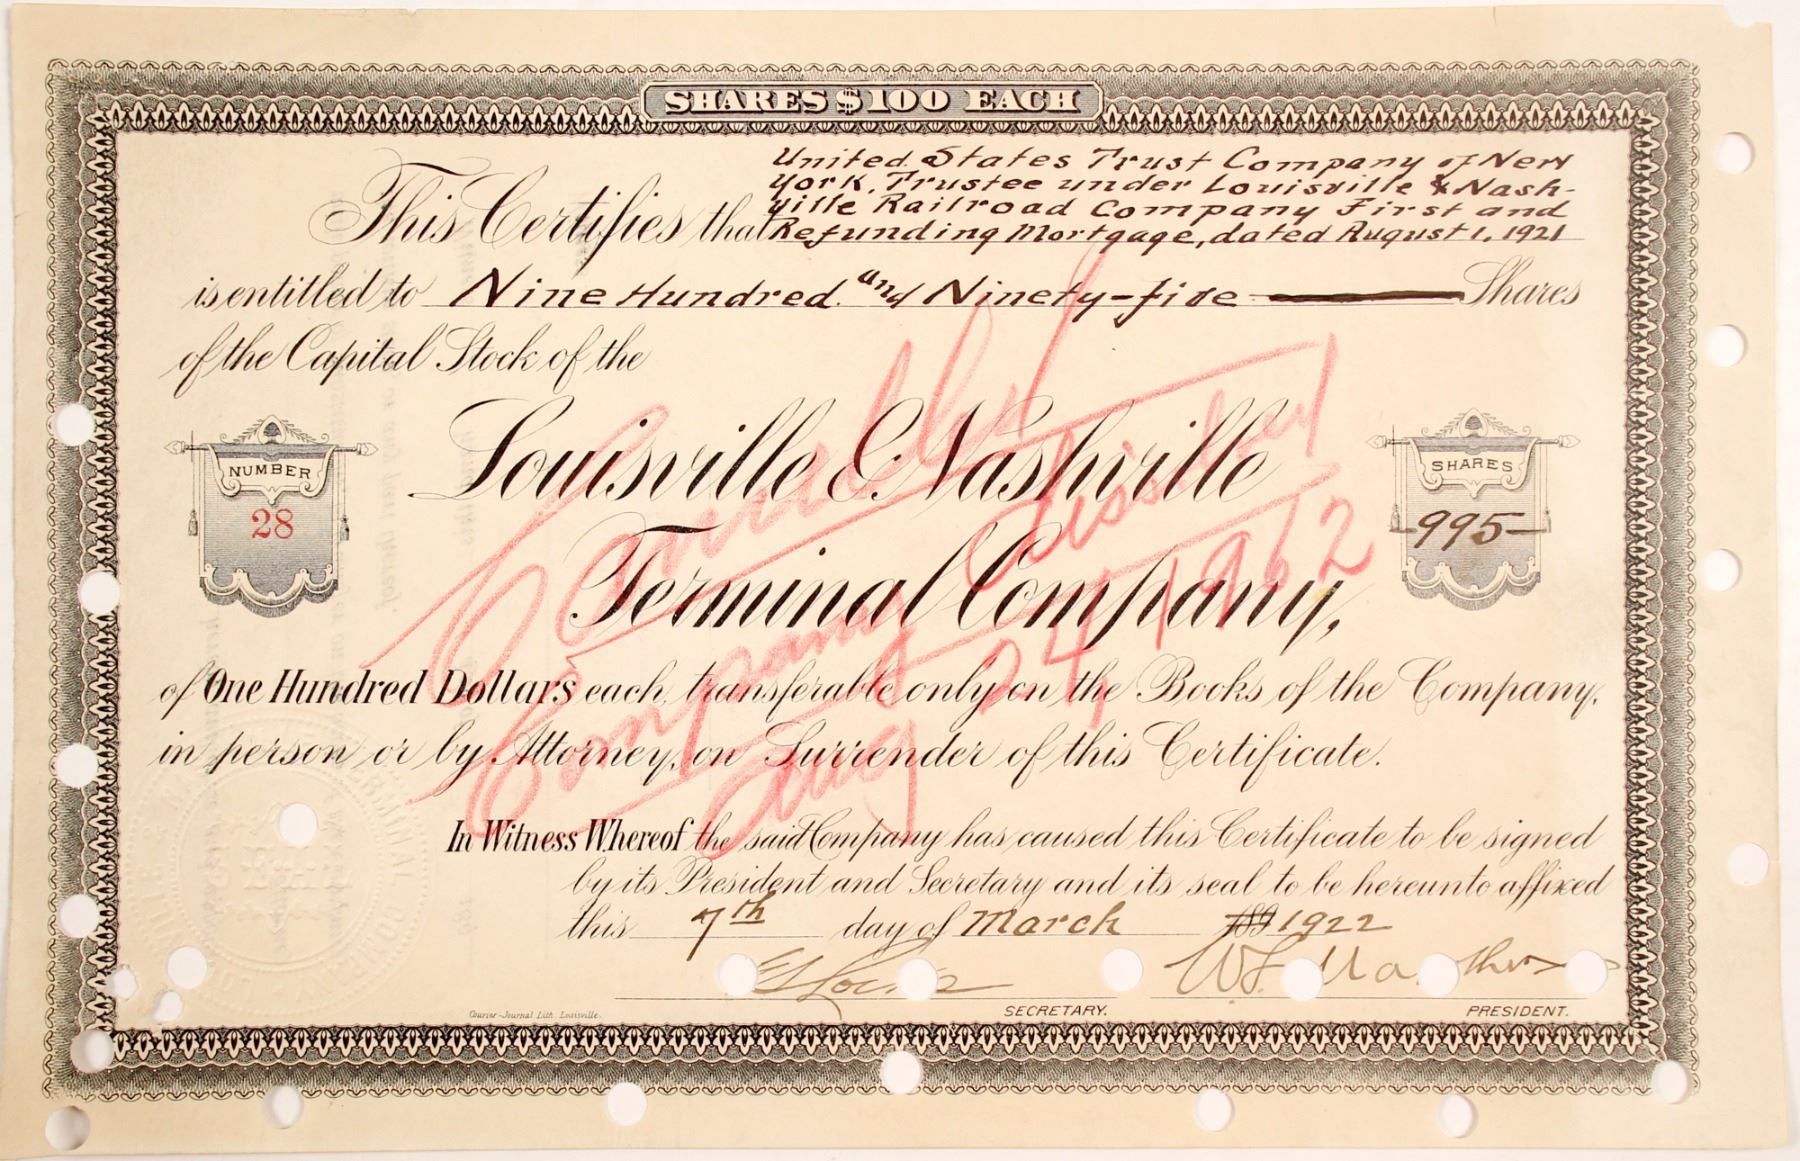 SHARES $100 EACH
United States Trust Company of New
York, Trustee under Louisville & Nash-
ville Railroad Company First and
This Certifies that Refunding Mortgage, dated August 1, 1921
is entitled to Nine Hundred and Ninety-five Shares
of the Capital Stock of the
NUMBER
28
Louisville & Nashville
Terminal Company,
SHARES
-995-
Cancelled
Company
Aug 24, 1962
of One Hundred Dollars each, transferable only on the Books of the Company,
in person or by Attorney, on Surrender of this Certificate.
In Witness Whereof the said Company has caused this Certificate to be signed
by its President and Secretary and its seal to be hereunto affixed
this 7th day of March 189 1922
SECRETARY.
PRESIDENT.
Courier-Journal Lith. Louisville.